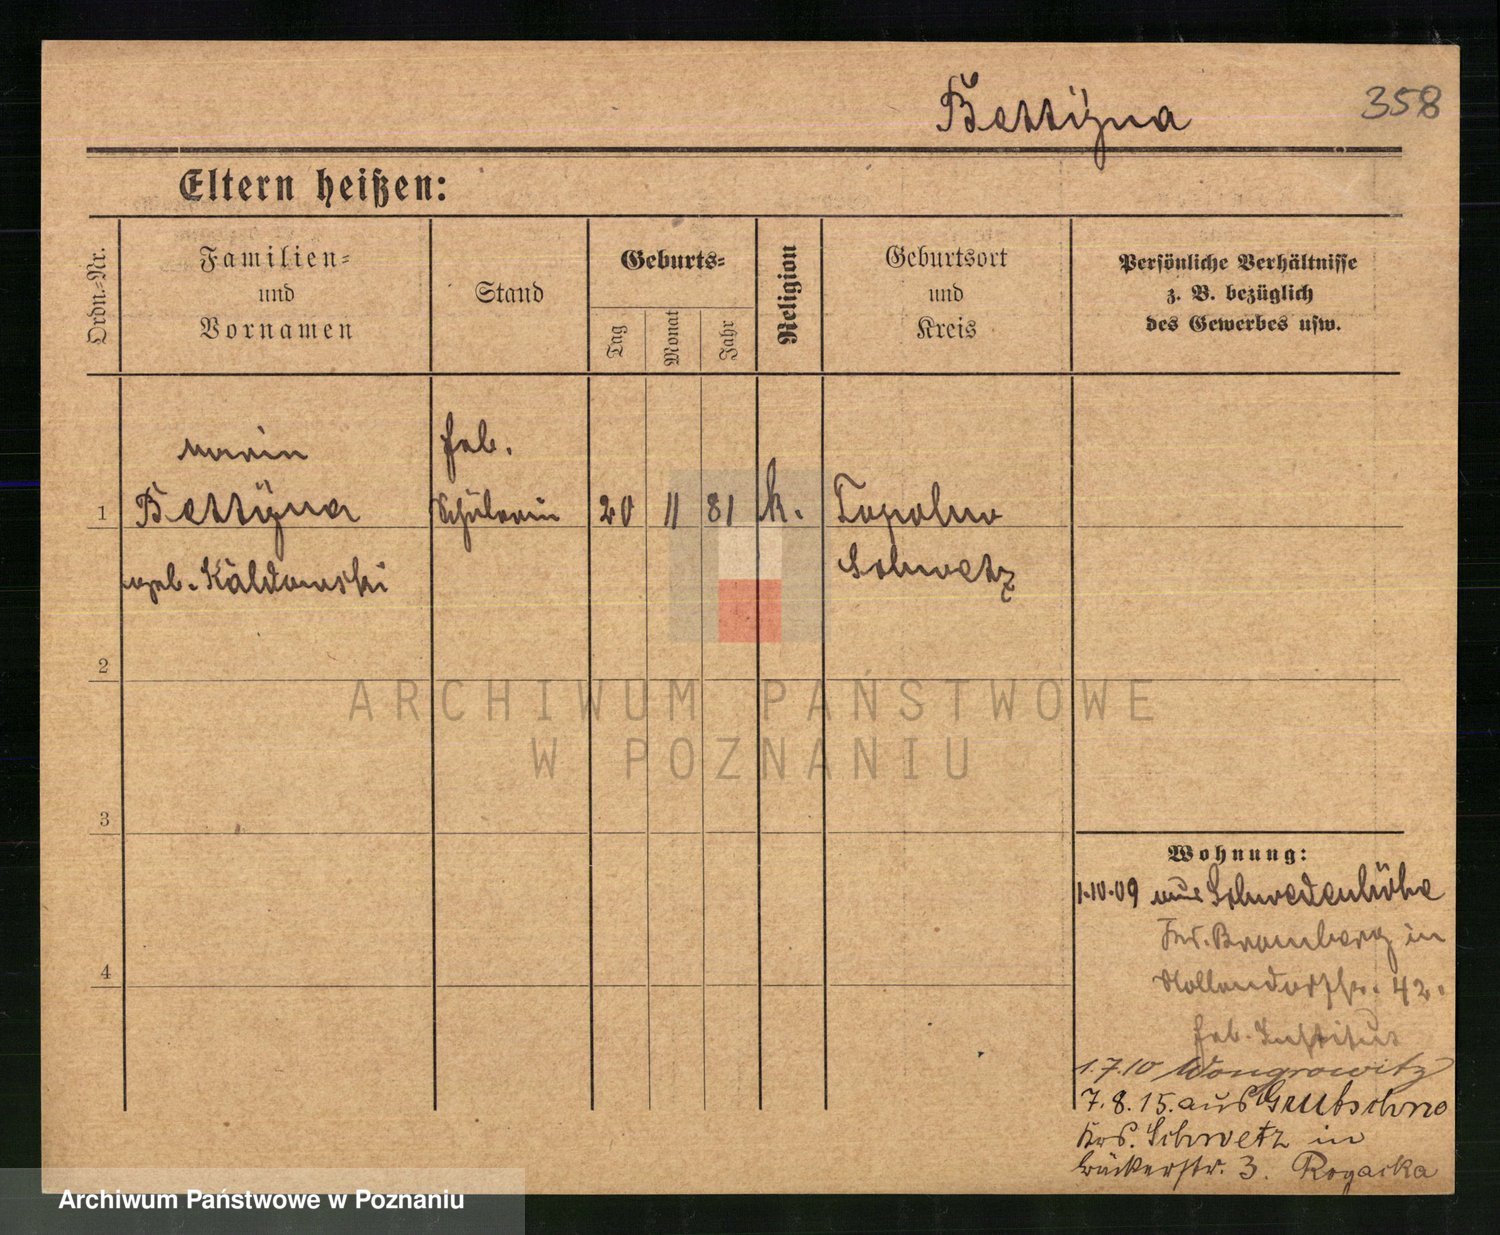 Bettÿna
358
Eltern heißen:
Ordn.-Nr.
Familien-
und
Vornamen
Stand
Geburts-
Tag
Monat
Jahr
Religion
Geburtsort
und
Kreis
Persönliche Verhältnisse
z. B. bezüglich
des Gewerbes usw.
Marie
Bettÿna
geb. Kaldowski
heb.
Schülerin
1
20
11
81
k.
Topolno
Schwetz
2
3
4
Wohnung:
1.10.09 aus Schwedenhöhe
Krs. Bromberg in
Nollendorfstr. 42.
heb. Institut
1.7.10 Wongrowitz
7.8.15. aus Grutschno
Krs. Schwetz in
Bäckerstr. 3. Rogacka
ARCHIWUM PAŃSTWOWE
W POZNANIU
Archiwum Państwowe w Poznaniu